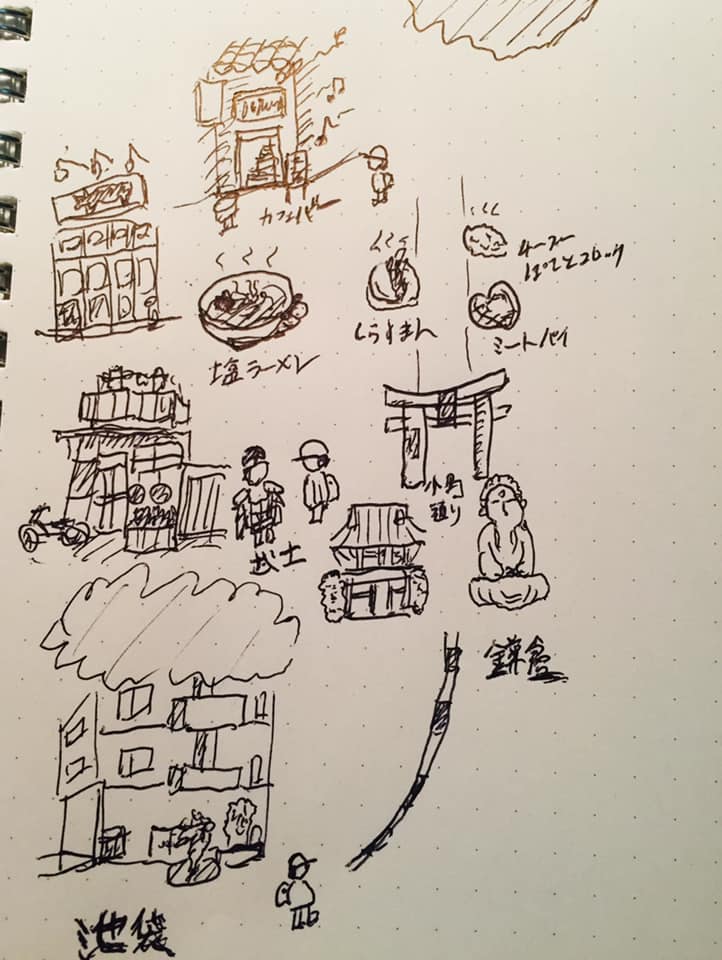 カフェバー
チーズ
ぽてとコロッケ
しらすまん
ミートパイ
塩ラーメン
小町
通り
武士
鎌倉
池袋